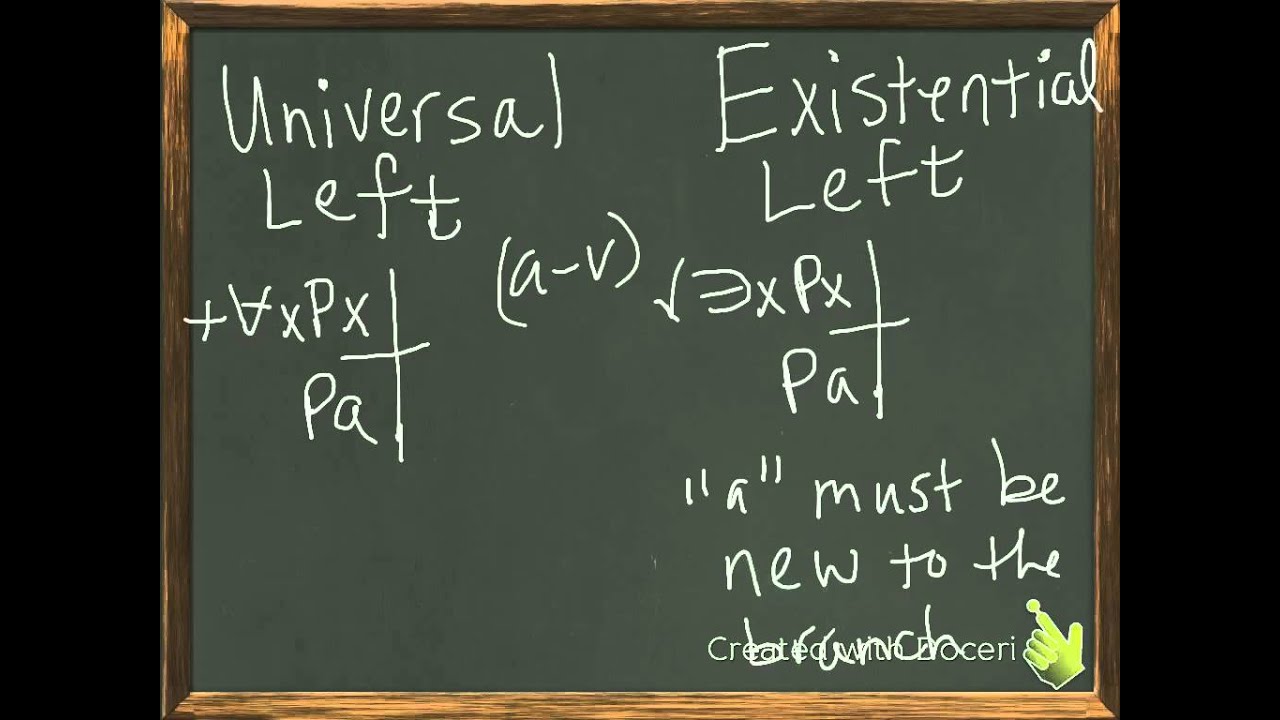 Universal
Left
+∀xPx
Pa
(a-v)
Existential
Left
√∃xPx
Pa
"a" must be
new to the
branch
Created with Doceri